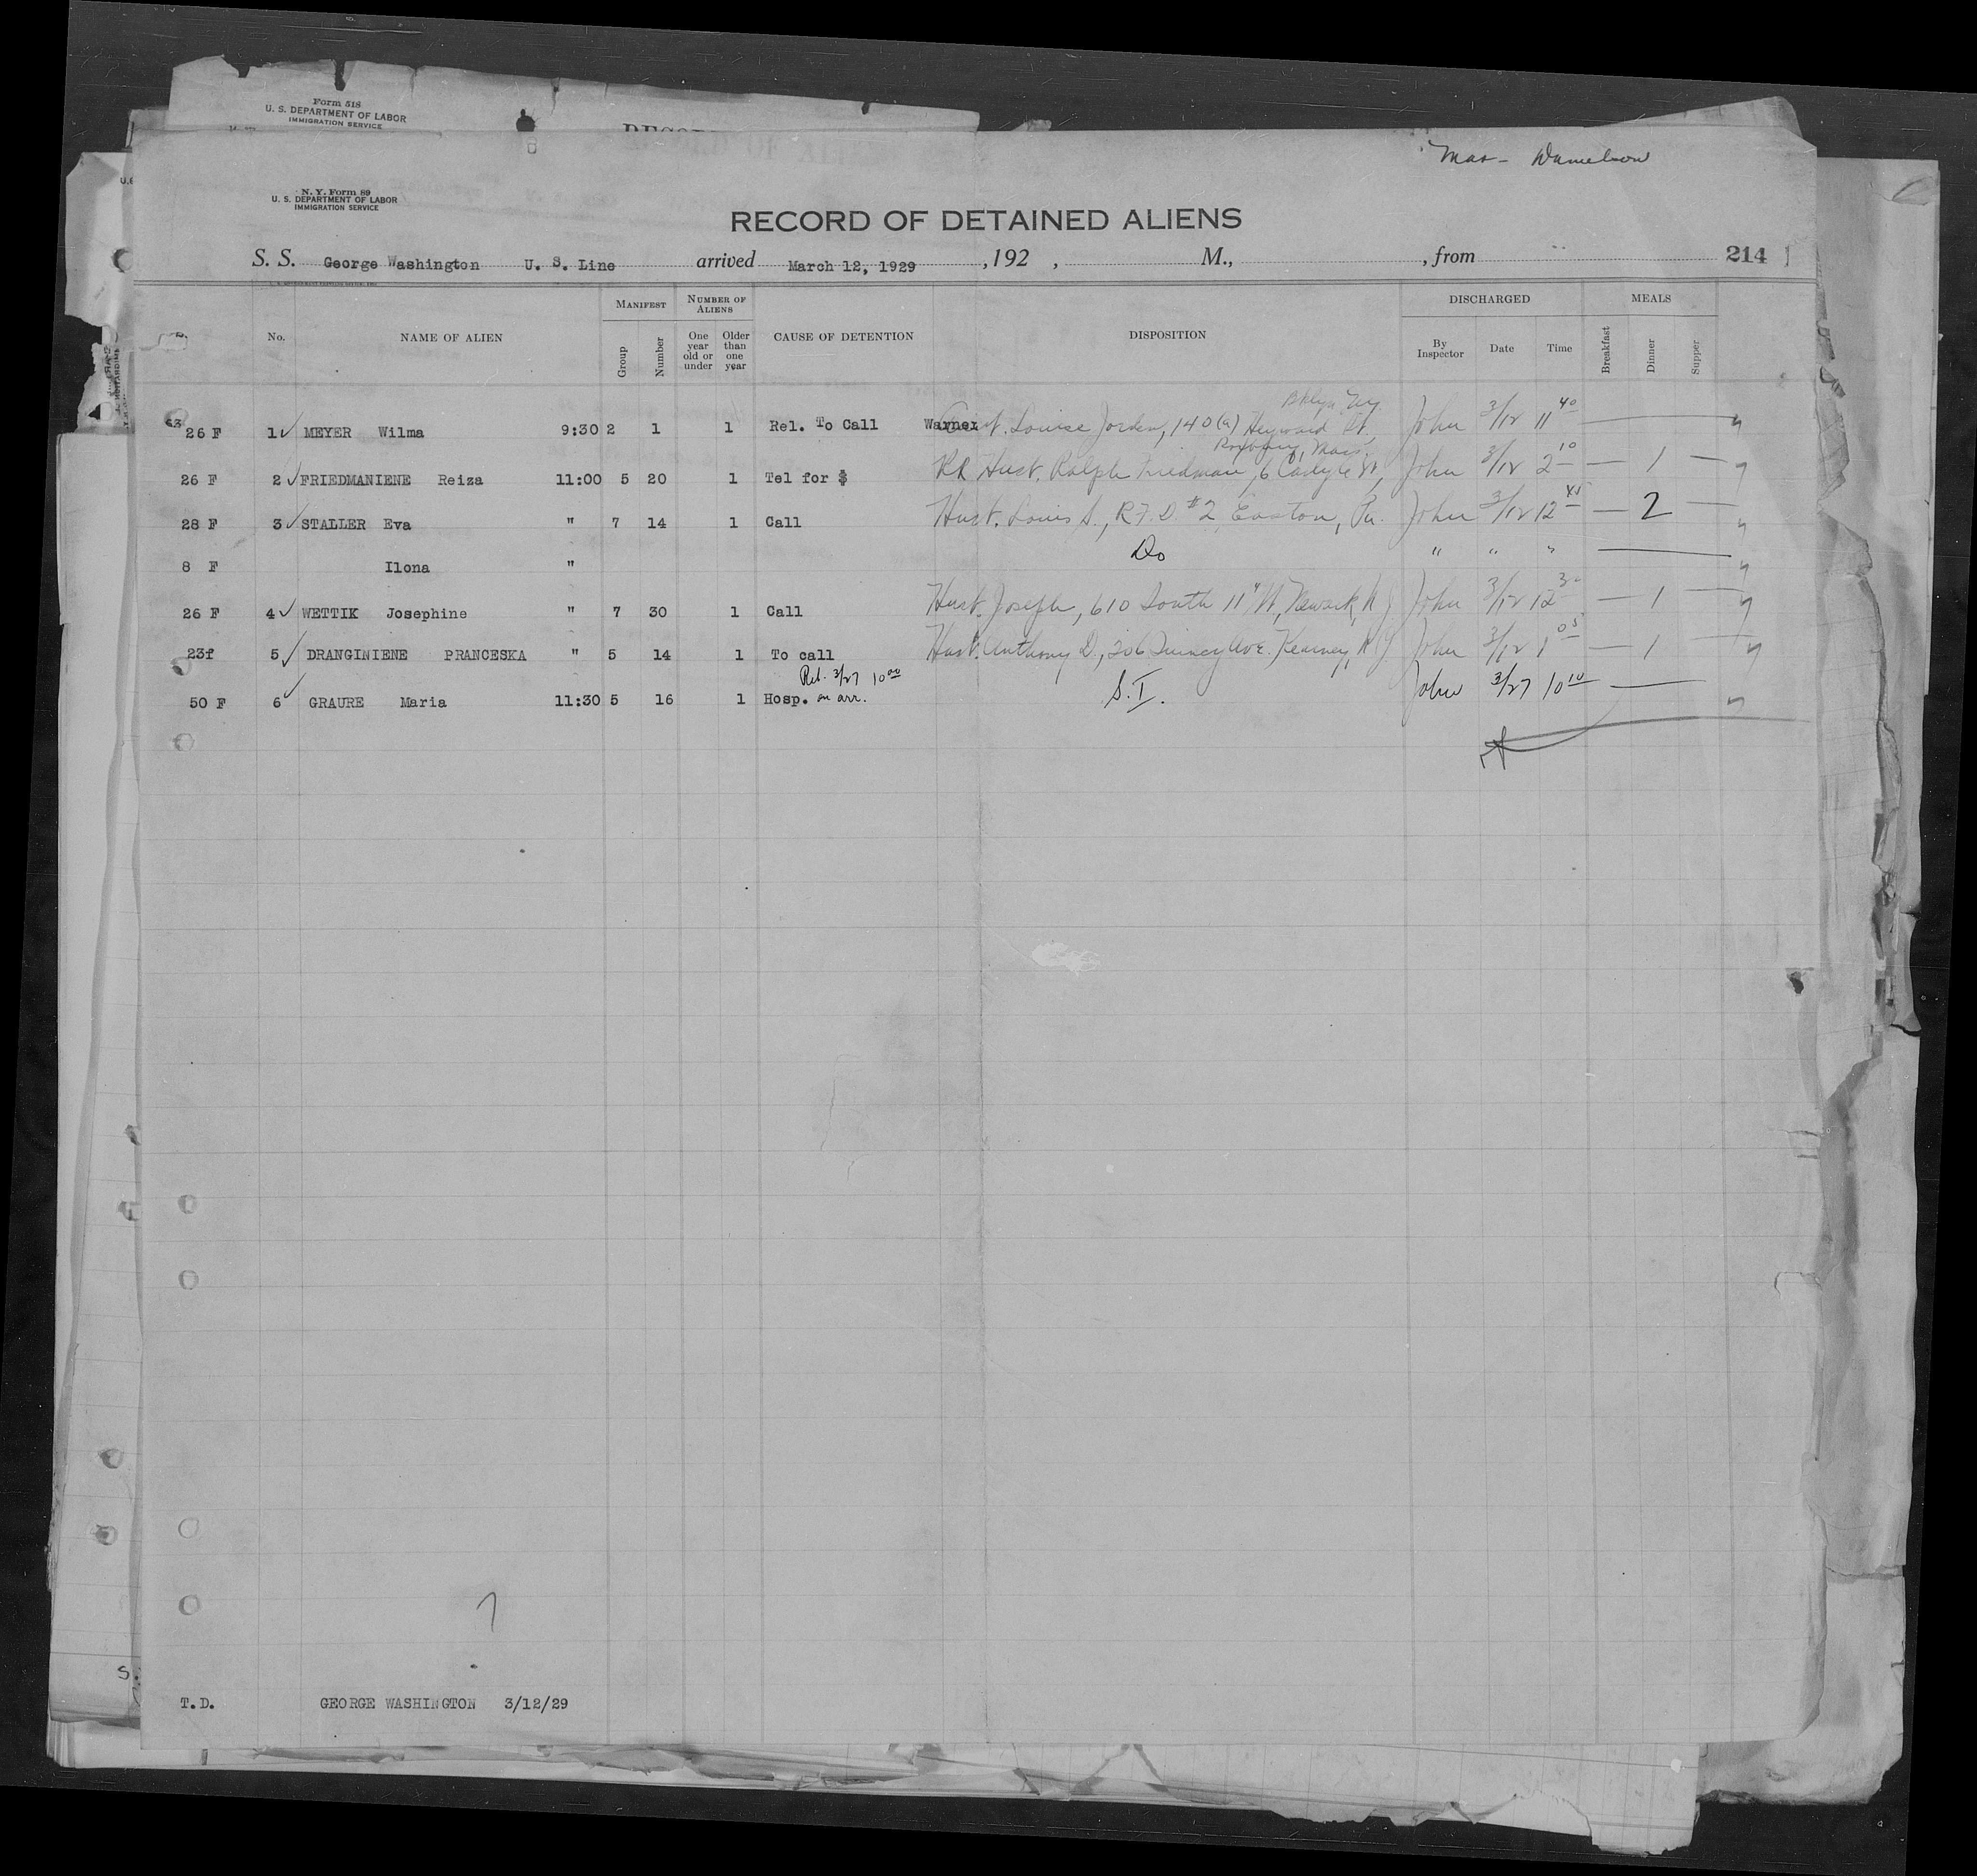 Form 518
U. S. DEPARTMENT OF LABOR
IMMIGRATION SERVICE
Mar-
N. Y. Form 89
U. S. DEPARTMENT OF LABOR
IMMIGRATION SERVICE
RECORD OF DETAINED ALIENS
S. S. George Washington U. S. Line arrived March 12, 1929 , 192 , M., , from 214
MANIFEST NUMBER OF ALIENS DISCHARGED MEALS
No. NAME OF ALIEN Group Number One year old or under Older than one year CAUSE OF DETENTION DISPOSITION By Inspector Date Time Breakfast Dinner Supper
Bklyn NY
26 F 1 ✓ MEYER Wilma 9:30 2 1 1 Rel. To Call Warner Louise Jorden, 140(a) Heyward St, John 3/12 11 40 —
Roxbury, Mass.
26 F 2 ✓ FRIEDMANIENE Reiza 11:00 5 20 1 Tel for $ RR Husb. Ralph Friedman, 6 Carlyle St, John 3/12 2 10 — 1 —
28 F 3 ✓ STALLER Eva " 7 14 1 Call Husb. Louis S., R.F.D. #2, Easton, Pa. John 3/12 12 45 — 2 —
8 F Ilona " Do " " " —
26 F 4 ✓ WETTIK Josephine " 7 30 1 Call Husb. Joseph, 610 South 11" St, Newark, N J John 3/12 12 30 — 1 —
23f 5 ✓ DRANGINIENE PRANCESKA " 5 14 1 To call Husb. Anthony D., 206 Quincy Ave. Kearney, N J John 3/12 1 05 — 1 —
Rel. 3/27 10 00
50 F 6 ✓ GRAURE Maria 11:30 5 16 1 Hosp. on arr. S.I. John 3/27 10 10 —
T.D. GEORGE WASHINGTON 3/12/29